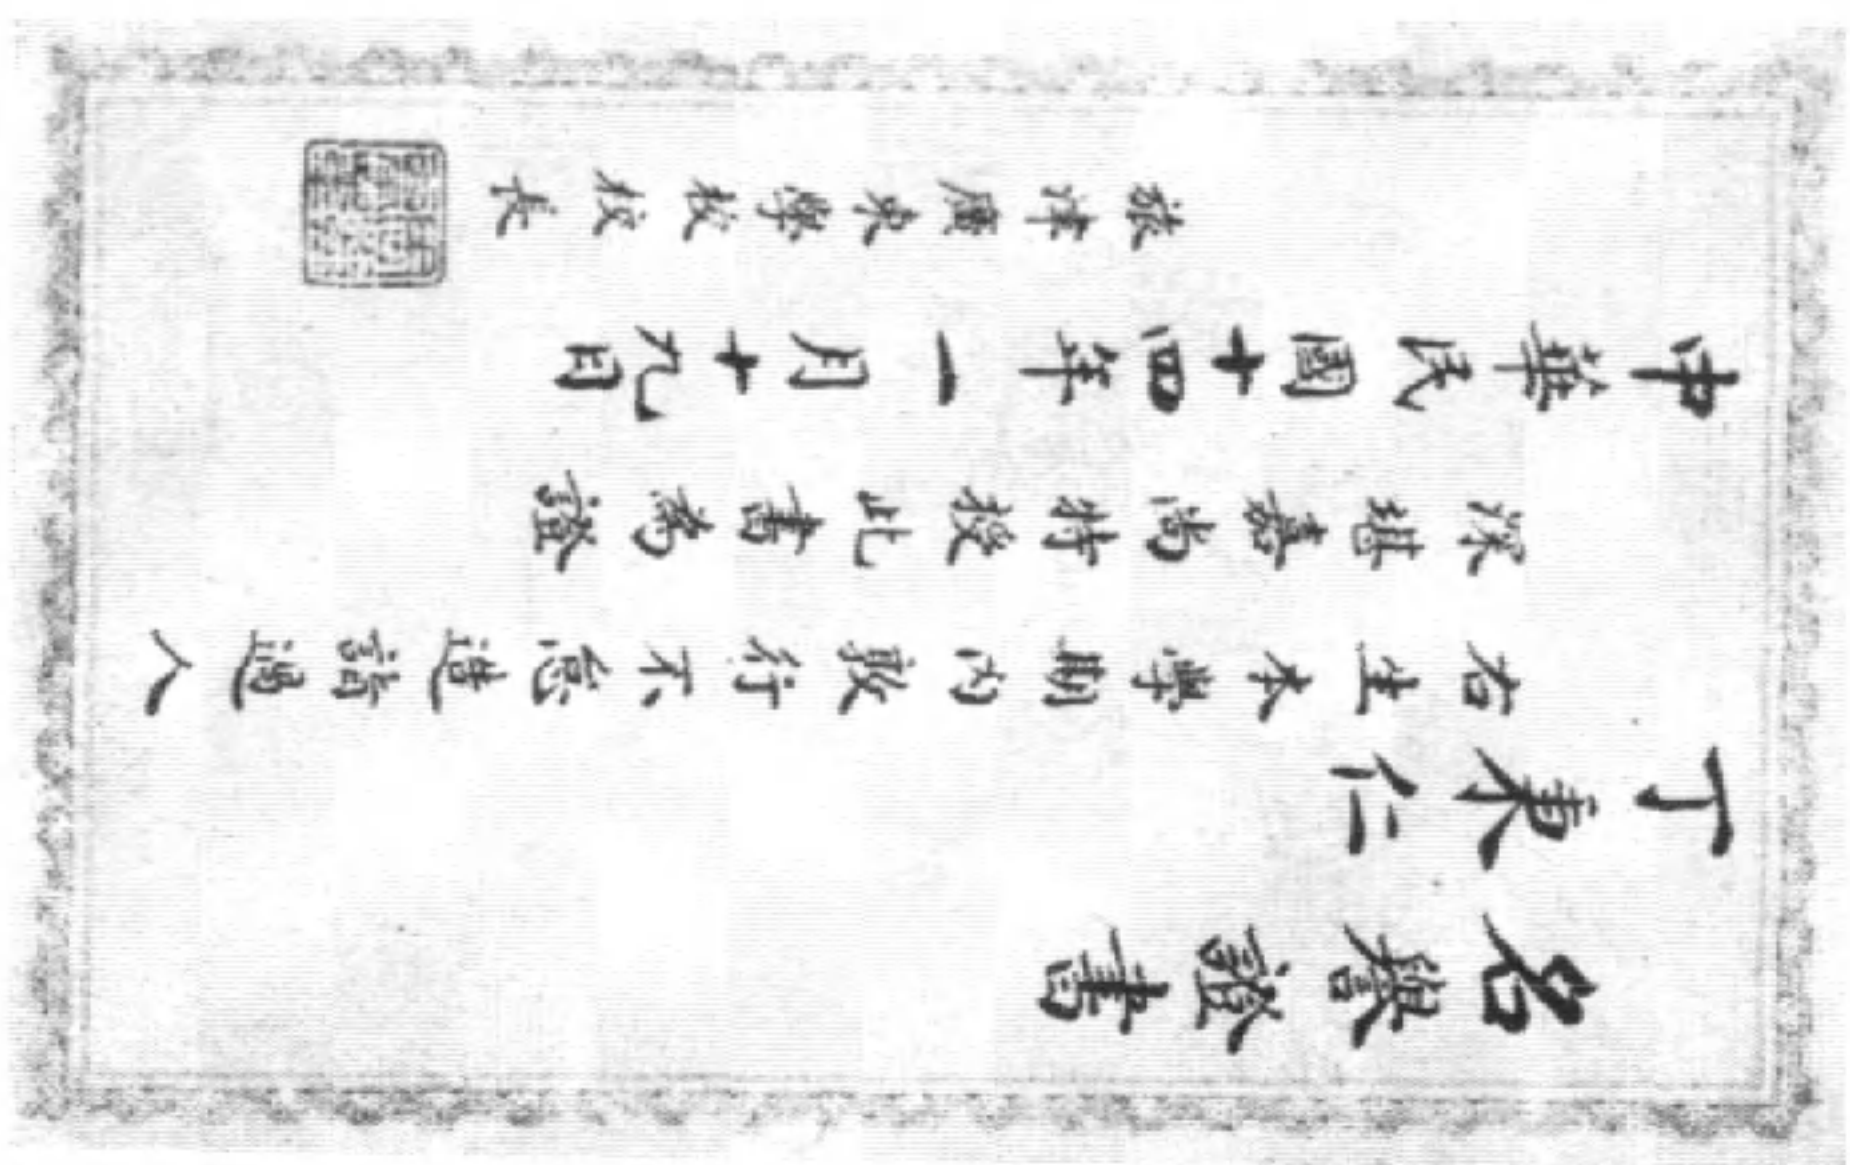 名譽證書
丁秉仁
右生本學期內敦行不怠造詣過人
深堪嘉尚特授此書為證
中華民國十四年一月十九日
旅津廣東學校校長